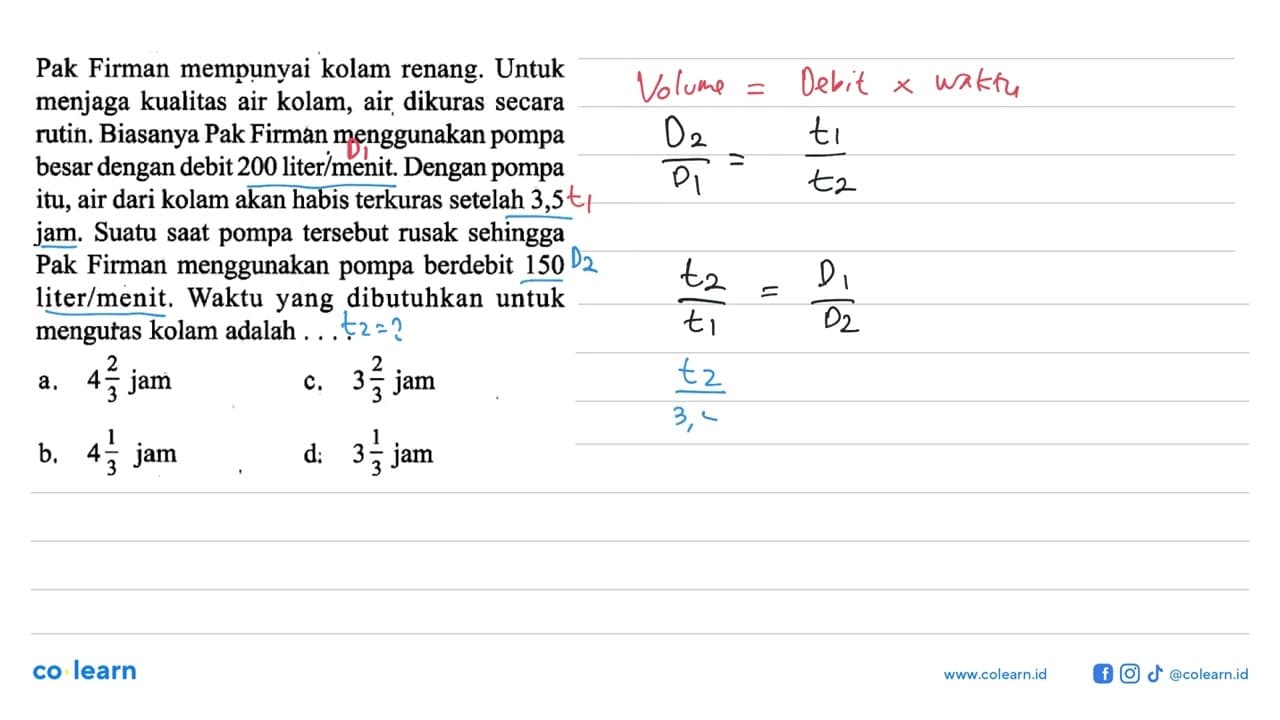 Pak Firman mempunyai kolam renang. Untuk
menjaga kualitas air kolam, air dikuras secara
rutin. Biasanya Pak Firman menggunakan pompa
D1
besar dengan debit 200 liter/menit. Dengan pompa
itu, air dari kolam akan habis terkuras setelah 3,5 t1
jam. Suatu saat pompa tersebut rusak sehingga
Pak Firman menggunakan pompa berdebit 150 D2
liter/menit. Waktu yang dibutuhkan untuk
menguras kolam adalah .... t2=?
a. 4 2/3 jam c. 3 2/3 jam
b. 4 1/3 jam d. 3 1/3 jam
Volume = Debit x waktu
D2/D1 = t1/t2
t2/t1 = D1/D2
t2/3,
co learn
www.colearn.id @colearn.id